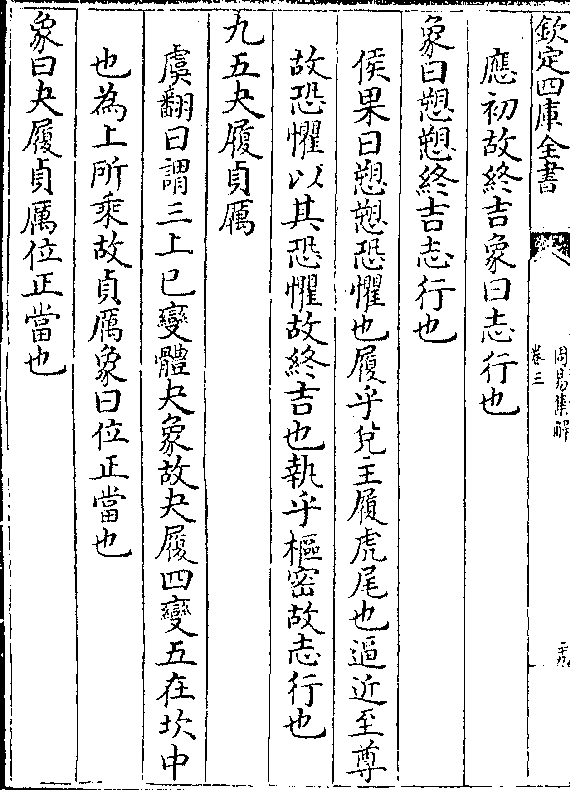 欽定四庫全書
周易集解
卷三
應初故終吉象曰志行也
象曰愬愬終吉志行也
侯果曰愬愬恐懼也履乎兌主履虎尾也逼近至尊
故恐懼以其恐懼故終吉也執乎樞密故志行也
九五夬履貞厲
虞翻曰謂三上已變體夬象故夬履四變五在坎中
也為上所乘故貞厲象曰位正當也
象曰夬履貞厲位正當也